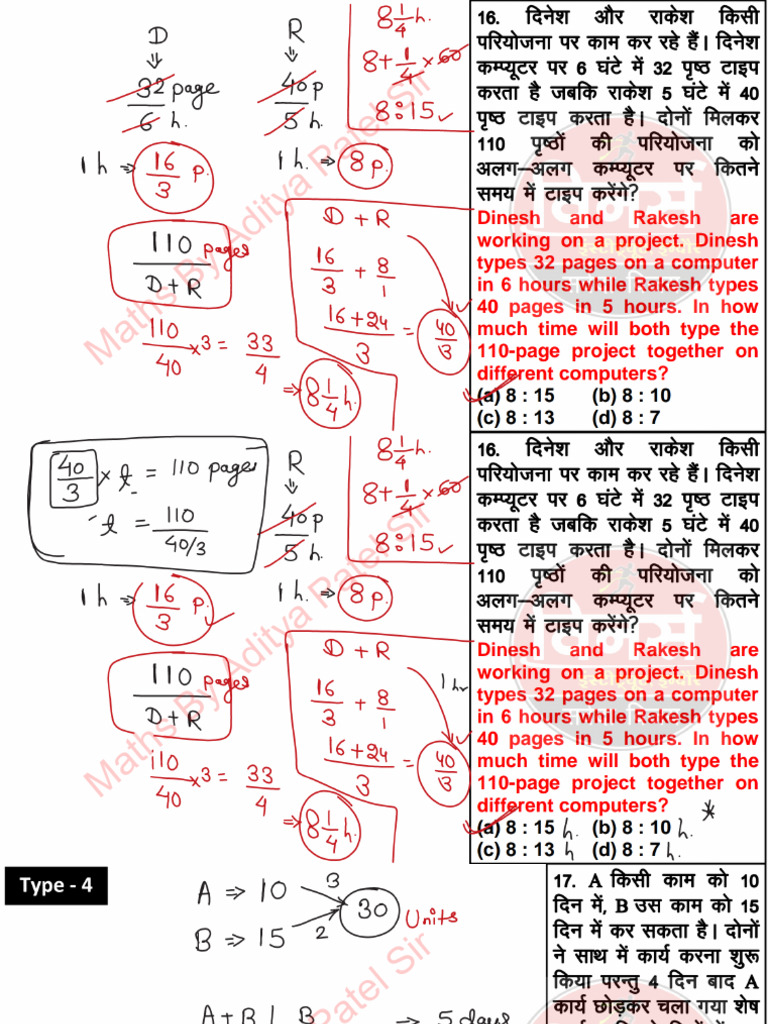 D
R
8 1/4 h.
32 page
6 h.
40 p
5 h.
8 + 1/4 × 60
8:15 ✓
1 h ⇒ 16/3 p.
1 h. ⇒ 8 p.
110 pages
D+R
D + R
16/3 + 8/1
16+24/3 = 40/3
110/40 × 3 = 33/4
⇒ 8 1/4 h.
16. दिनेश और राकेश किसी
परियोजना पर काम कर रहे हैं। दिनेश
कम्प्यूटर पर 6 घंटे में 32 पृष्ठ टाइप
करता है जबकि राकेश 5 घंटे में 40
पृष्ठ टाइप करता है। दोनों मिलकर
110 पृष्ठों की परियोजना को
अलग–अलग कम्प्यूटर पर कितने
समय में टाइप करेंगे?
Dinesh and Rakesh are
working on a project. Dinesh
types 32 pages on a computer
in 6 hours while Rakesh types
40 pages in 5 hours. In how
much time will both type the
110-page project together on
different computers?
(a) 8 : 15 (b) 8 : 10
(c) 8 : 13 (d) 8 : 7
Maths By Aditya Patel Sir
40/3 × t = 110 pages
t = 110/40/3
R
40 p
5 h.
8 1/4 h.
8 + 1/4 × 60
8:15 ✓
1 h ⇒ 16/3 p. ✓
1 h. ⇒ 8 p.
110 pages
D+R
D + R
16/3 + 8/1
1 hr
16+24/3 = 40/3
110/40 × 3 = 33/4
⇒ 8 1/4 h.
16. दिनेश और राकेश किसी
परियोजना पर काम कर रहे हैं। दिनेश
कम्प्यूटर पर 6 घंटे में 32 पृष्ठ टाइप
करता है जबकि राकेश 5 घंटे में 40
पृष्ठ टाइप करता है। दोनों मिलकर
110 पृष्ठों की परियोजना को
अलग–अलग कम्प्यूटर पर कितने
समय में टाइप करेंगे?
Dinesh and Rakesh are
working on a project. Dinesh
types 32 pages on a computer
in 6 hours while Rakesh types
40 pages in 5 hours. In how
much time will both type the
110-page project together on
different computers?
(a) 8 : 15 h. (b) 8 : 10 h.
(c) 8 : 13 h (d) 8 : 7 h.
Maths By Aditya Patel Sir
Type - 4
A ⇒ 10 3
30 Units
B ⇒ 15 2
A+B | B ⇒ 5 days
Patel Sir
17. A किसी काम को 10
दिन में, B उस काम को 15
दिन में कर सकता है। दोनों
ने साथ में कार्य करना शुरू
किया परन्तु 4 दिन बाद A
कार्य छोड़कर चला गया शेष